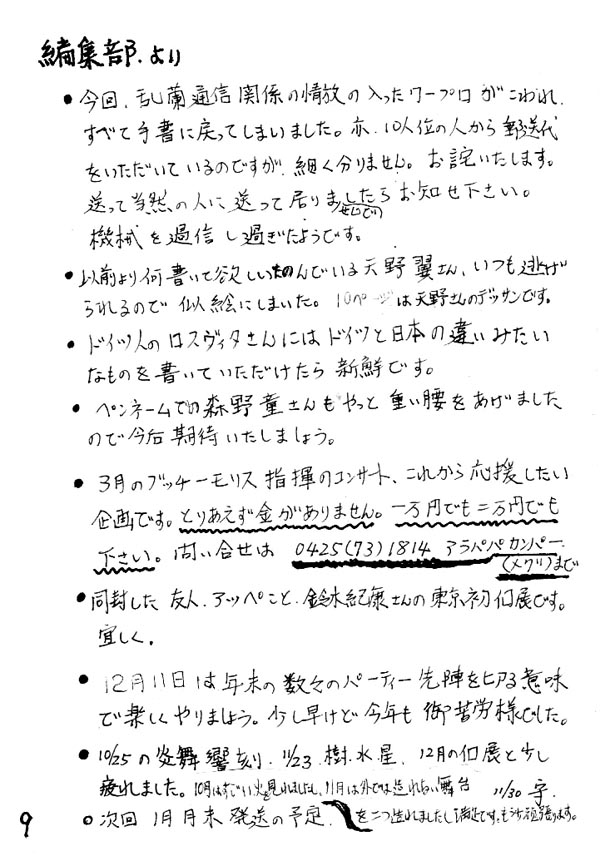 編集部.より
• 今回、乱蘭通信関係の情放の入ったワープロがこわれ、
すべて手書に戻ってしまいました。亦、10人位の人から郵送代
をいただいているのですが、細く分りません。お詫いたします。
送って当然の人に送って居りませんでしたらお知せ下さい。
機械を過信し過ぎたようです。
• 以前より何書いて欲しいたのんでいる天野翼さん、いつも逃げ
られるので似絵にしまいた。10ページは天野さんのデッサンです。
• ドイツ人のロスヴィタさんにはドイツと日本の違いみたい
なものを書いていただけたら新鮮です。
• ペンネームでの森野童さんもやっと重い腰をあげました
ので今后期待いたしましょう。
• 3月のブッチーモリス指揮のコンサート、これから応援したい
企画です。とりあえず金がありません。一万円でも二万円でも
下さい。問い合せは 0425(73)1814 アラパパカンパニー.
(メグリ)まで
• 同封した友人、アッペこと、鈴木紀康さんの東京初個展です。
宜しく。
• 12月11日は年末の数々のパーティー先陣を切る意味
で楽しくやりましょう。少し早けど今年も御苦労様でした。
• 10/25の炎舞響刻、11/23.樹.水星、12月の個展と少し
疲れました。10月はすごい火を見れましたし、11月は外では造れない舞台
を二つ造れましたし満足です。もう少し頑張ります。 11/30 守.
○ 次回 1月月末 発送の予定.
9